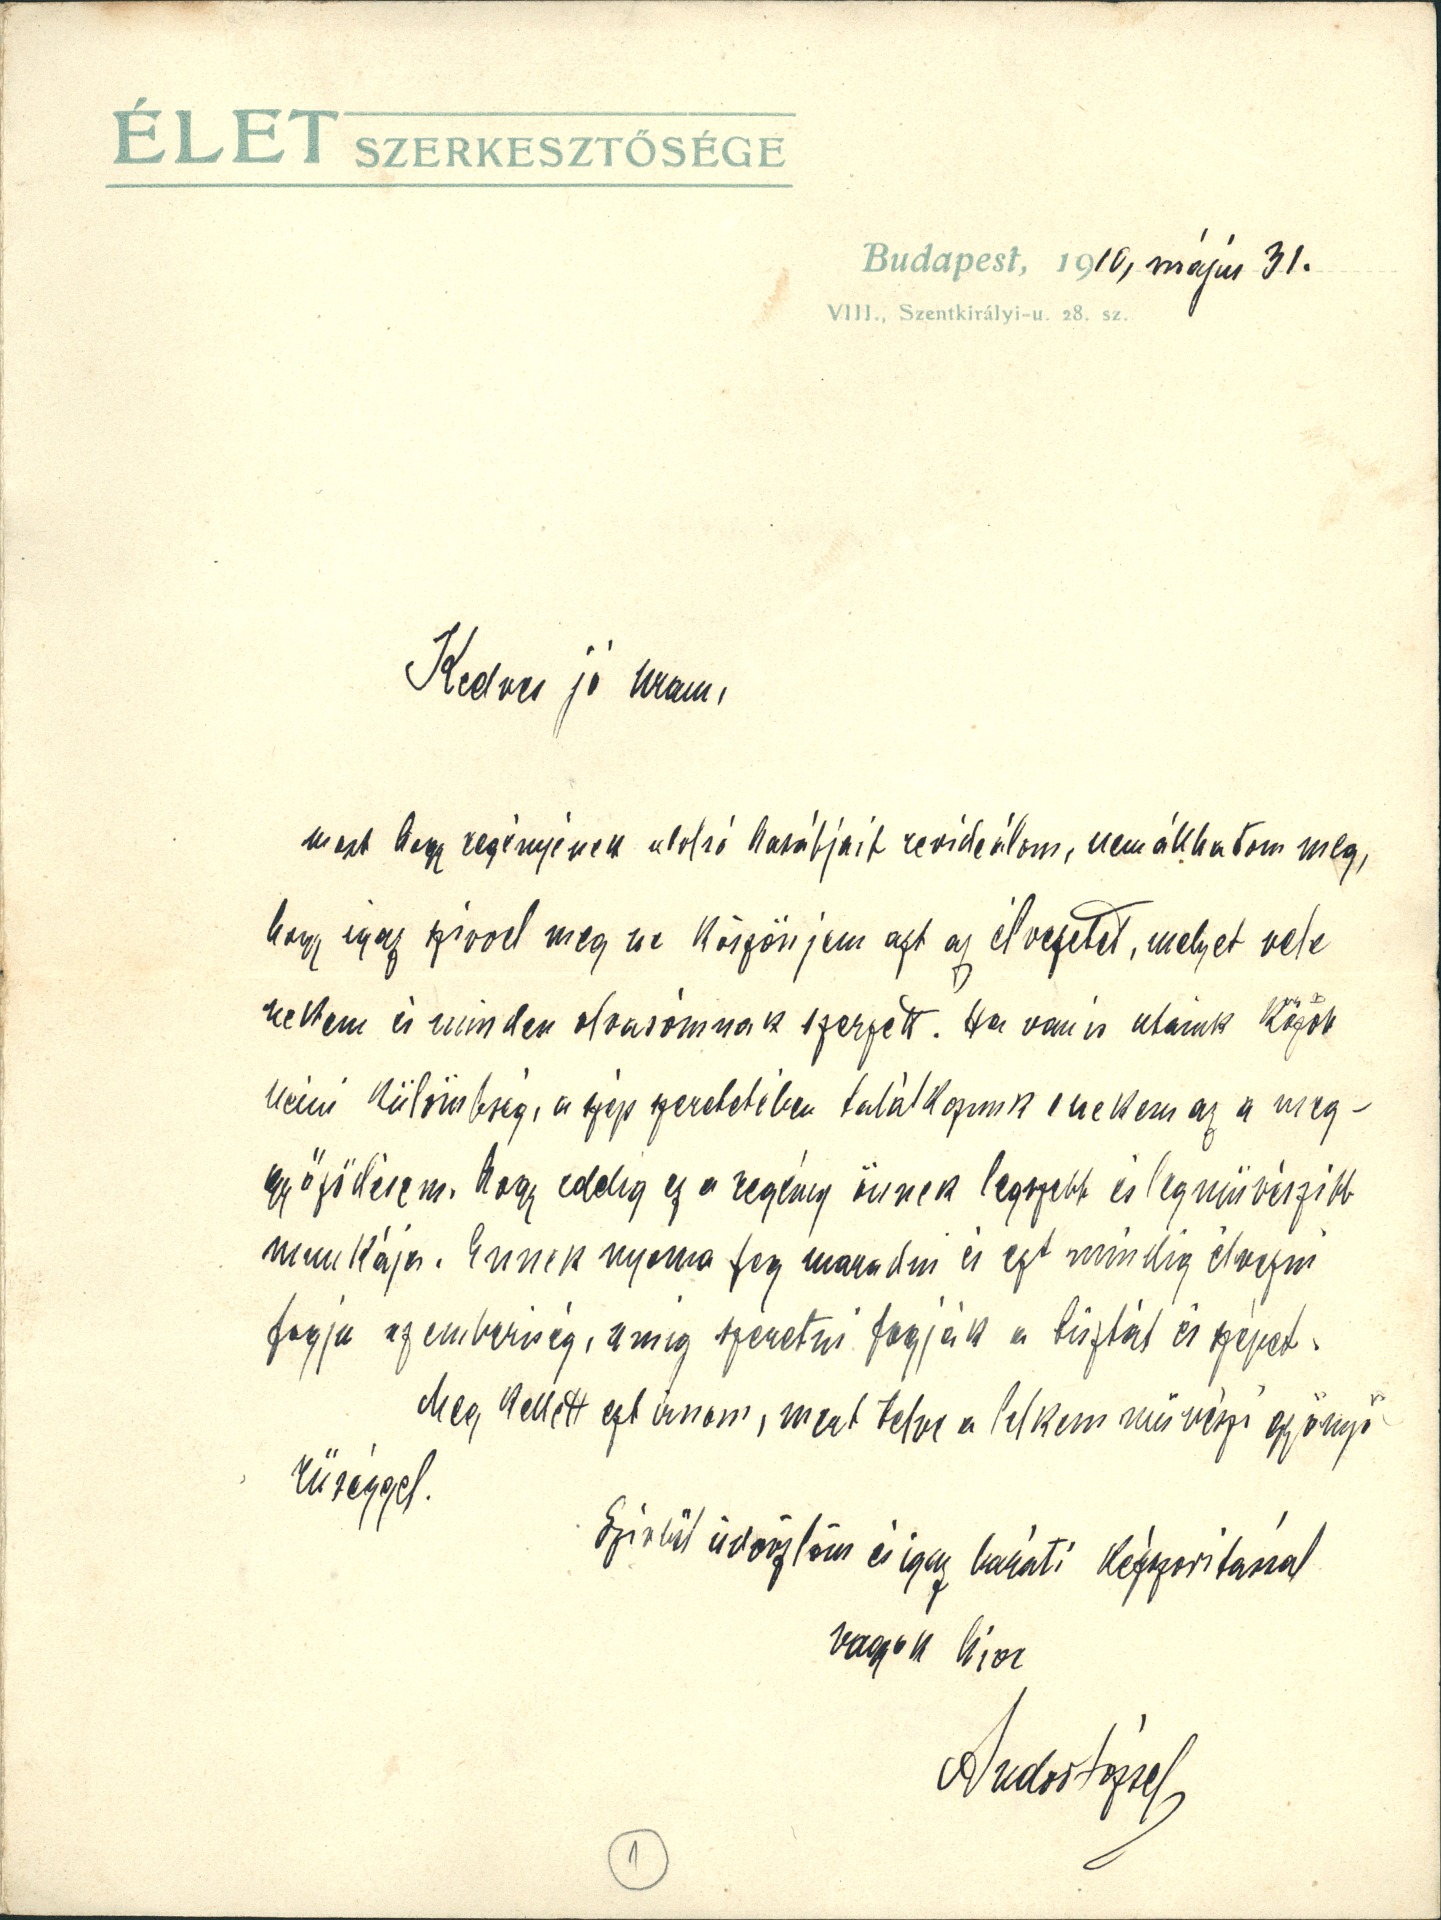 ÉLET SZERKESZTŐSÉGE
Budapest, 1910, május 31.
VIII., Szentkirályi-u. 28. sz.
Kedves jó Uram,
most hogy regényének utolsó hasábjait revideálom, nem állhatom meg,
hogy igaz szívvel meg ne köszönjem azt az élvezetet, melyet vele
nekem és minden olvasómnak szerzett. Ha van is utaink között
némi külömbség, a szép szeretetében találkozunk s nekem az a meg-
győződésem, hogy eddig ez a regény önnek legszebb és legművészibb
munkája. Ennek nyoma fog maradni és ezt mindig élvezni
fogja az emberiség, amig szeretni fogják a tisztát és szépet.
Meg kellett ezt írnom, mert telve a lelkem művészi gyönyö
rűséggel.
Szivből üdvözlöm és igaz baráti kézszorítással
vagyok híve
Andor József
1